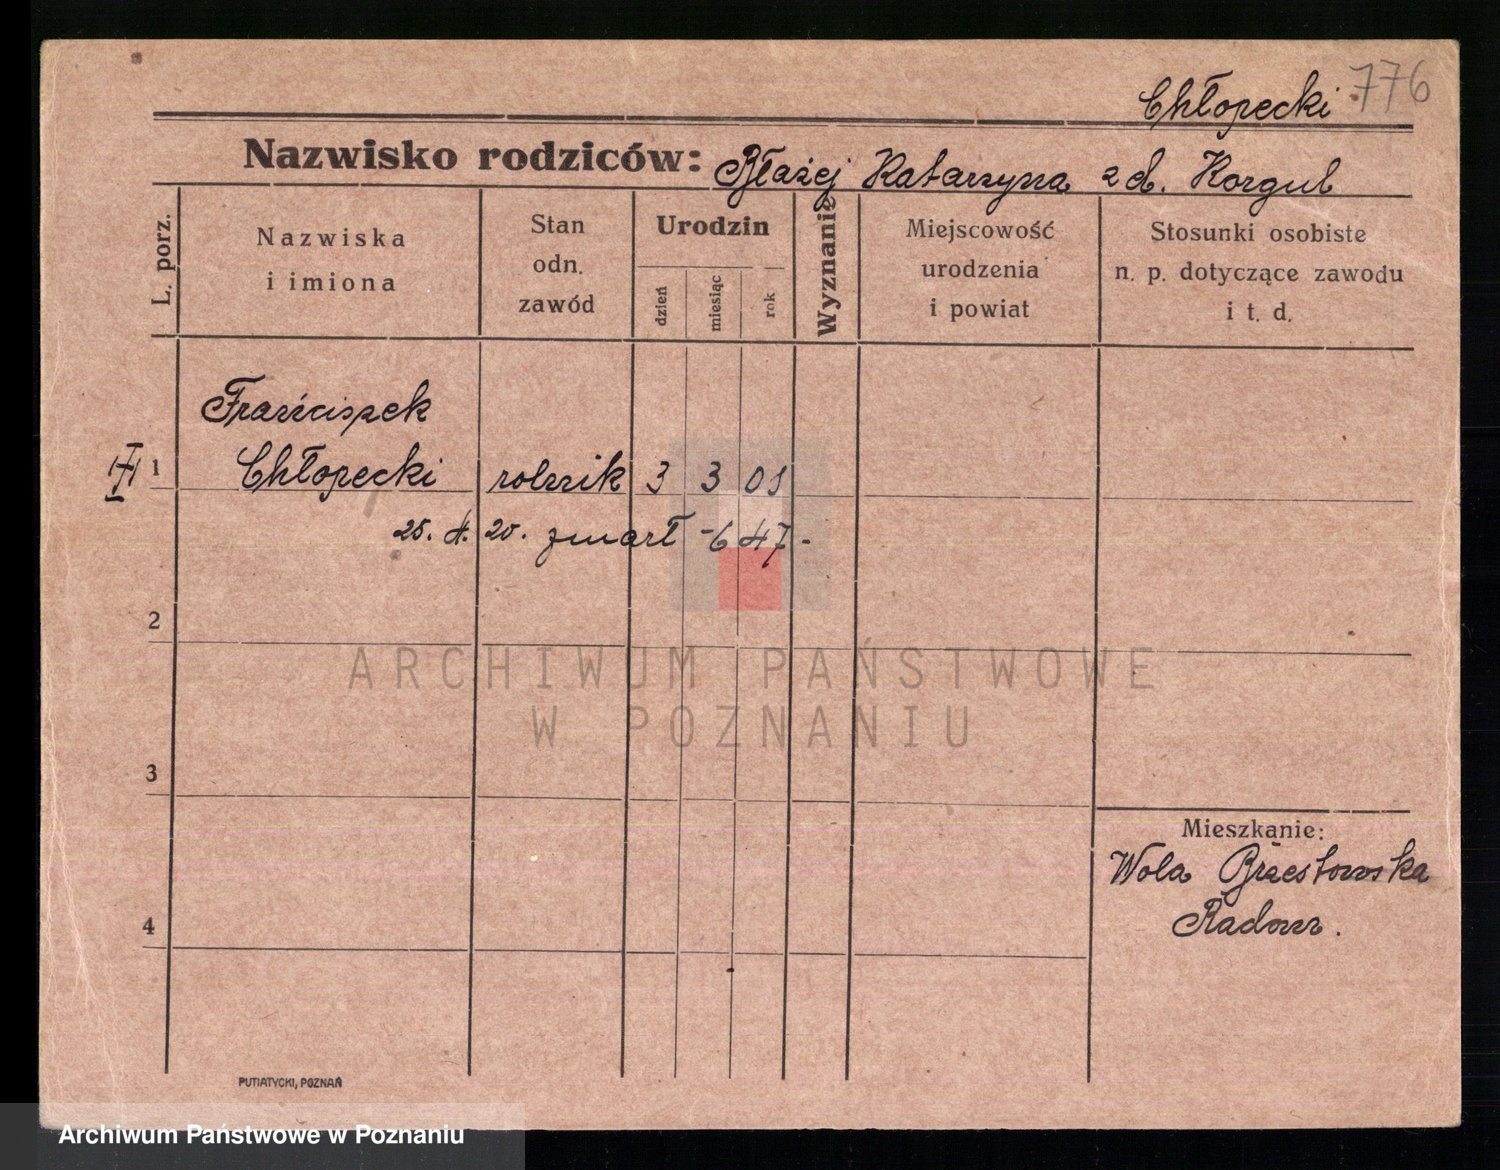 Chłopecki 776
Nazwisko rodziców: Błażej Katarzyna z d. Korgul
L. porz.
Nazwiska
i imiona
Stan
odn.
zawód
Urodzin
dzień
miesiąc
rok
Wyznanie
Miejscowość
urodzenia
i powiat
Stosunki osobiste
n. p. dotyczące zawodu
i t. d.
Franciszek
1 Chłopecki rolnik 3 3 01
25. 4. 20. zmarł -6 47-
2
ARCHIWUM PAŃSTWOWE
W POZNANIU
3
Mieszkanie:
Wola Brzestowska
4
Radom.
PUTIATYCKI, POZNAŃ
Archiwum Państwowe w Poznaniu